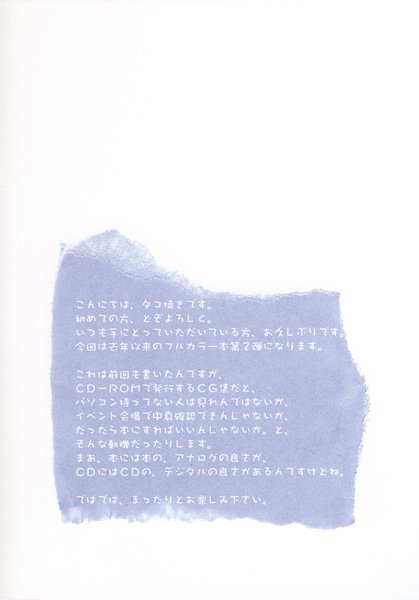 こんにちは、タコ焼きです。
初めての方、どぞよろしく。
いつも手にとっていただいている方、お久しぶりです。
今回は去年以来のフルカラー本第2弾になります。
これは前回も書いたんですが、
CD-ROMで発行するCG集だと、
パソコン持ってない人は見れんではないか、
イベント会場で中身確認できんじゃないか、
だったら本にすればいいんじゃないか。と、
そんな動機だったりします。
まあ、本には本の、アナログの良さが、
CDにはCDの、デジタルの良さがあるんですけどね。
ではでは、まったりとお楽しみ下さい。